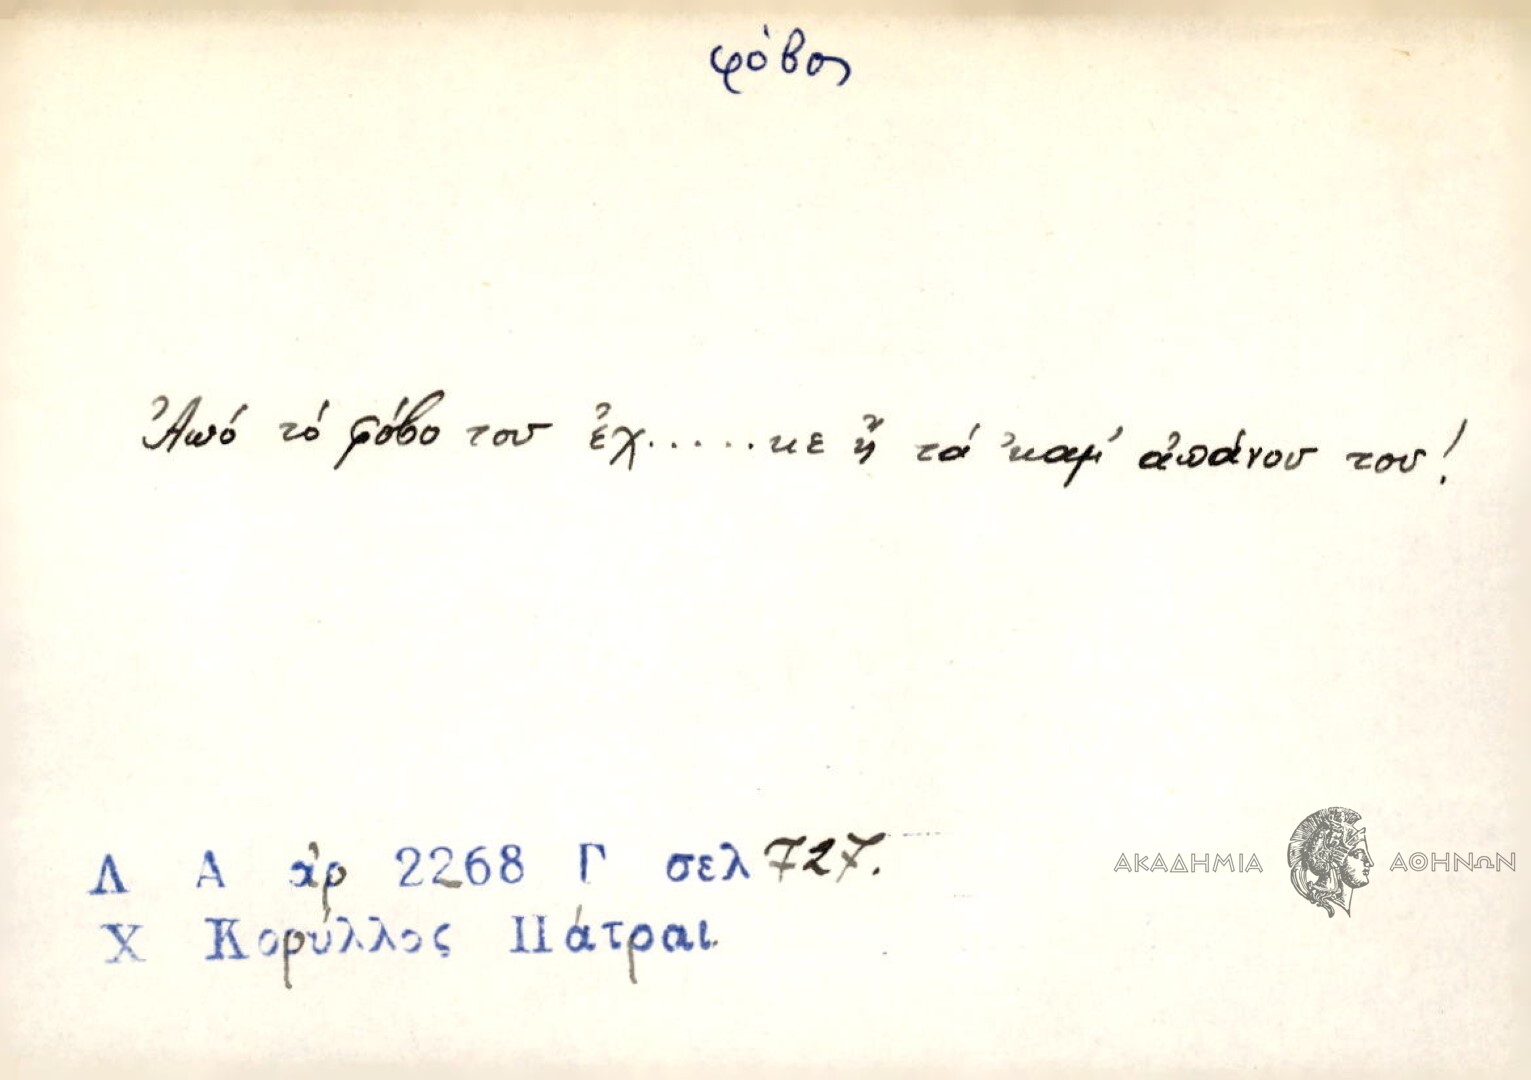 φόβος
Ἀπό τό φόβο του ἐχ.....κε ἤ τά 'καμ' ἀπάνου του!
Λ Α ἀρ 2268 Γ σελ 727.
Χ Κορύλλος Πάτραι
ΑΚΑΔΗΜΙΑ ΑΘΗΝΩΝ